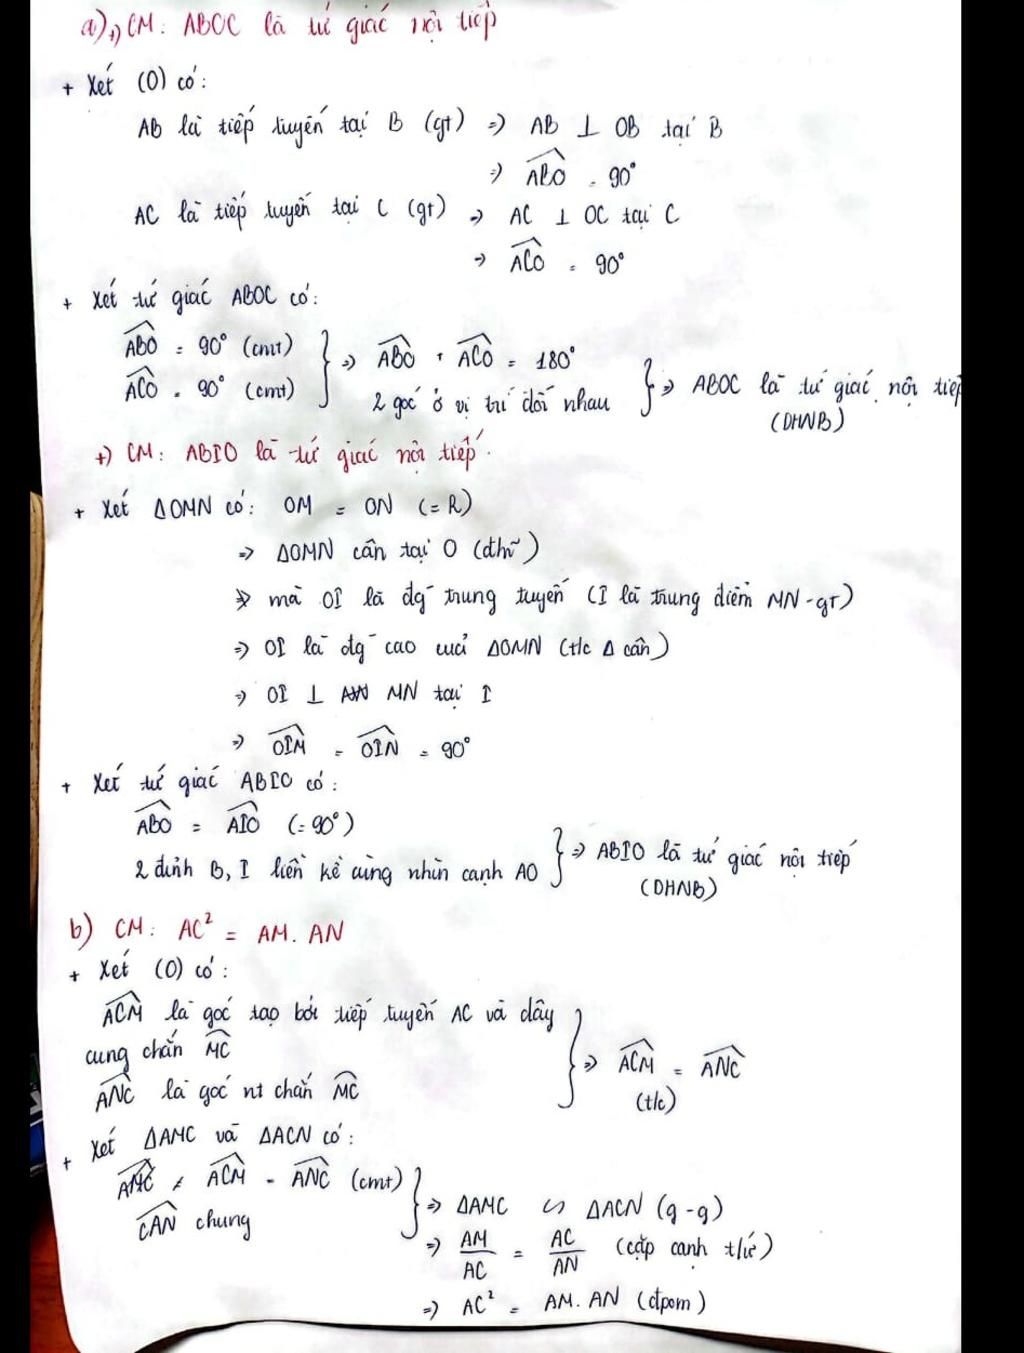 a) +) CM: ABOC là tứ giác nội tiếp
+ Xét (O) có:
AB là tiếp tuyến tại B (gt) => AB ⊥ OB tại B
=> ABO = 90°
AC là tiếp tuyến tại C (gt) => AC ⊥ OC tại C
=> ACO = 90°
+ Xét tứ giác ABOC có:
ABO = 90° (cmt)
ACO = 90° (cmt)
=> ABO + ACO = 180°
2 góc ở vị trí đối nhau
=> ABOC là tứ giác nội tiếp
(DHNB)
+) CM: ABIO là tứ giác nội tiếp.
+ Xét ΔOMN có: OM = ON (= R)
=> ΔOMN cân tại O (đhĩ)
=> mà OI là đg trung tuyến (I là trung điểm MN - gt)
=> OI là đg cao của ΔOMN (t/c Δ cân)
=> OI ⊥ MN tại I
=> OIM = OIN = 90°
+ Xét tứ giác ABIO có:
ABO = AIO (= 90°)
2 đỉnh B, I liền kề cùng nhìn cạnh AO
=> ABIO là tứ giác nội tiếp
(DHNB)
b) CM: AC² = AM. AN
+ Xét (O) có:
ACM là góc tạo bởi tiếp tuyến AC và dây
cung chắn MC
ANC là góc nt chắn MC
=> ACM = ANC
(t/c)
+ Xét ΔAMC và ΔACN có:
ACM = ANC (cmt)
CAN chung
=> ΔAMC ∽ ΔACN (g-g)
=> AM/AC = AC/AN (cặp cạnh t/ứ)
=> AC² = AM. AN (đpcm)